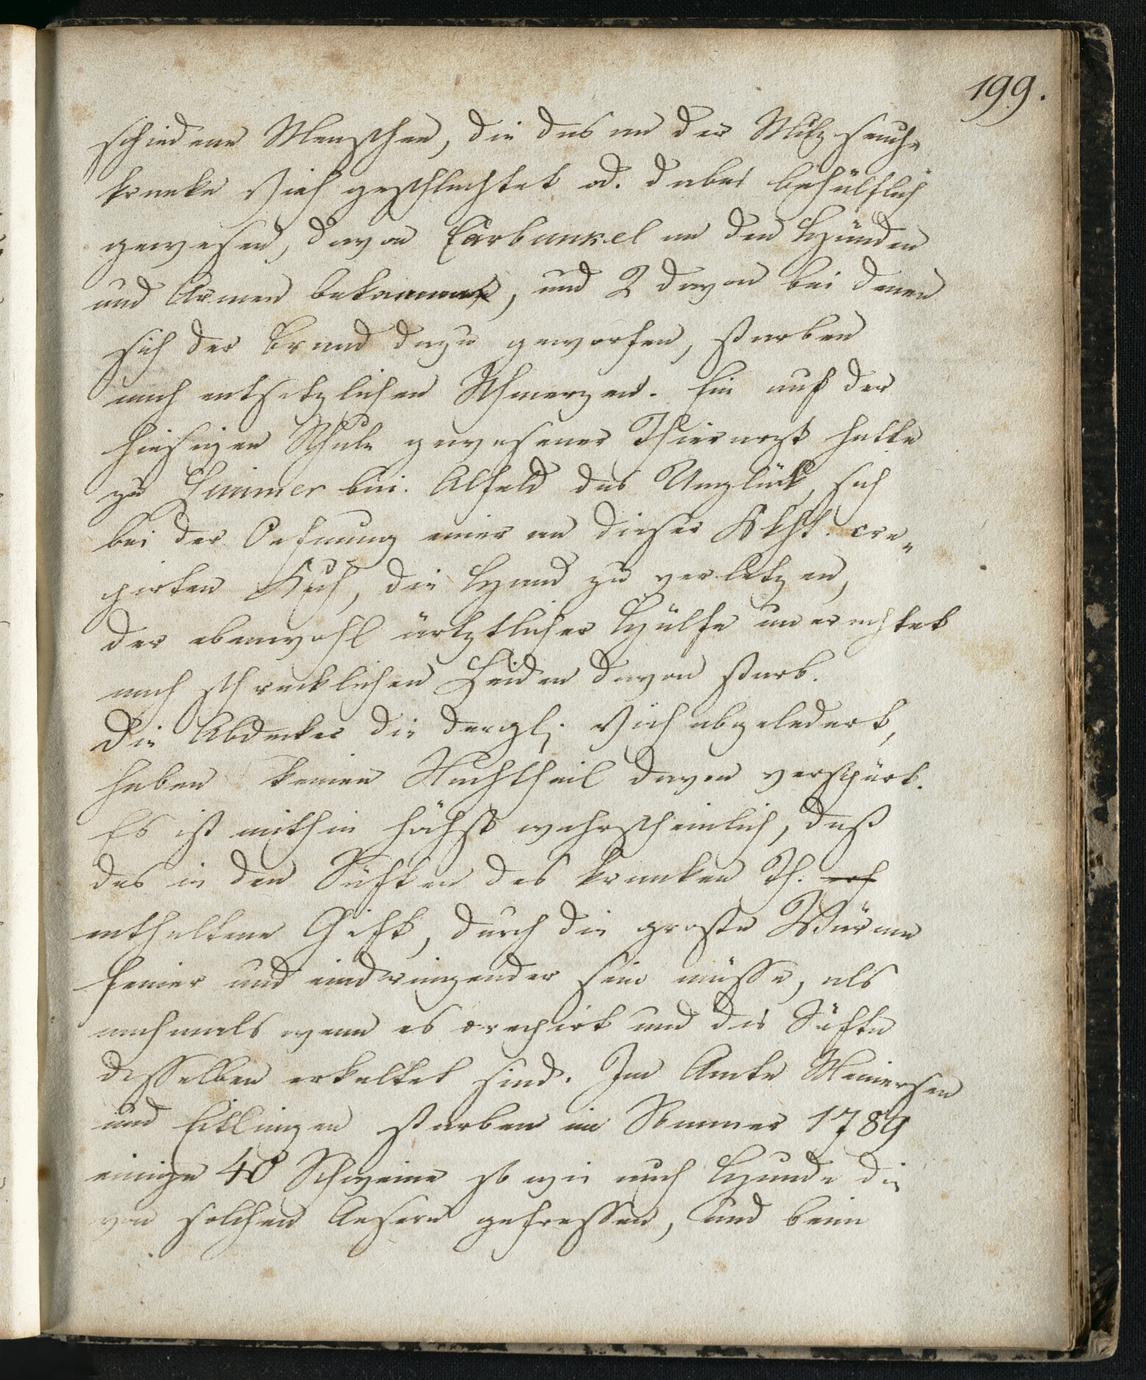 199.
schiedene Menschen, die das an der Milzseuche
kranke Vieh geschlachtet od. dabei behülflich
gewesen, davon Carbunkel an den Händen
und Armen bekommen, und 2 davon bei denen
sich der Brand dazu geworfen, starben
nach entsetzlichen Schmerzen. Ein auf der
hiesigen Schule gewesener Thierarzt hatte
zu Limmer bei Alfeld das Unglück, sich
bei der Oefnung einer an dieser Kkht. cre„
pirten Kuh, die Hand zu verletzen,
der ebenwohl ärtztlicher Hülfe unerachtet
nach schrecklichen Leiden davon starb.
Die Abdecker die dergl. Vieh abgeledert,
haben keinen Nachtheil davon verspürt.
Es ist mithin höchst wahrscheinlich, daß
das in den Säften des kranken Th.
enthaltene Gift, durch die große Wärme
feiner und eindringender sein müsse, als
nachmals wenn es crepirt und die Säfte
desselben erkaltet sind. Im Amte Meinersen
und Eiklingen starben im Sommer 1789
einige 40 Schweine so wie auch Hunde die
von solchen Aesern gefressen, und beim